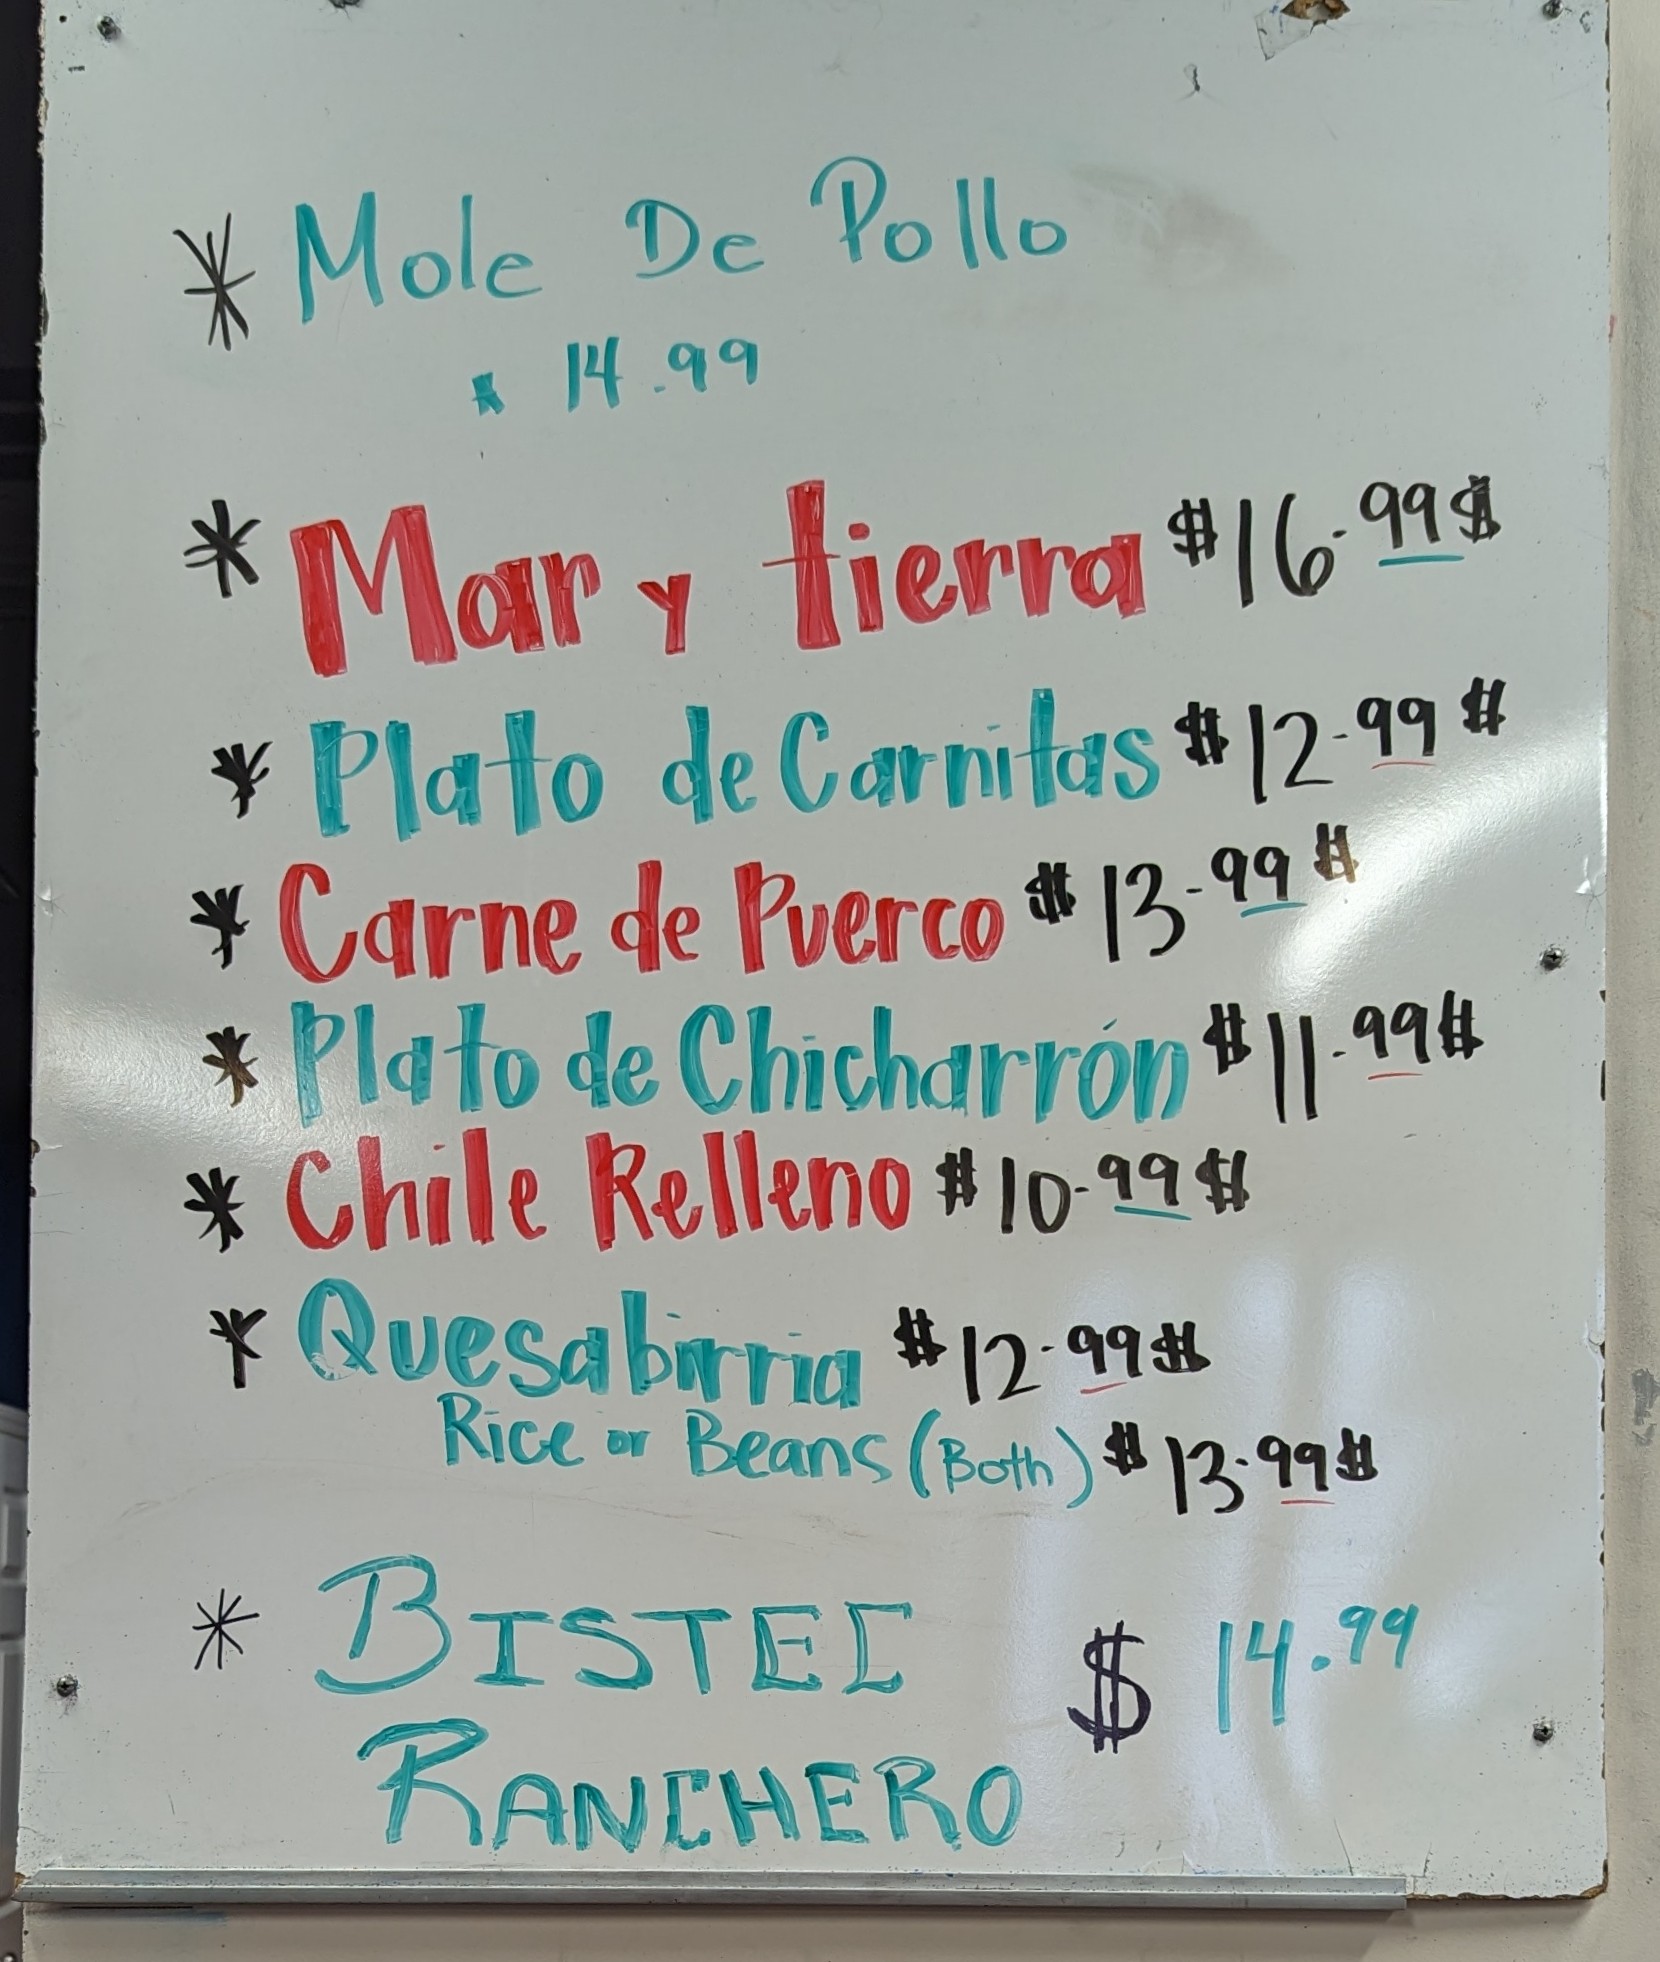 * Mole De Pollo
$ 14.99
* Mar y tierra $16.99$
* Plato de Carnitas $12.99$
* Carne de Puerco $13.99$
* Plato de Chicharrón $11.99$
* Chile Relleno $10.99$
* Quesabirria $12.99$
Rice or Beans (Both) $13.99$
* BISTEC $ 14.99
RANCHERO